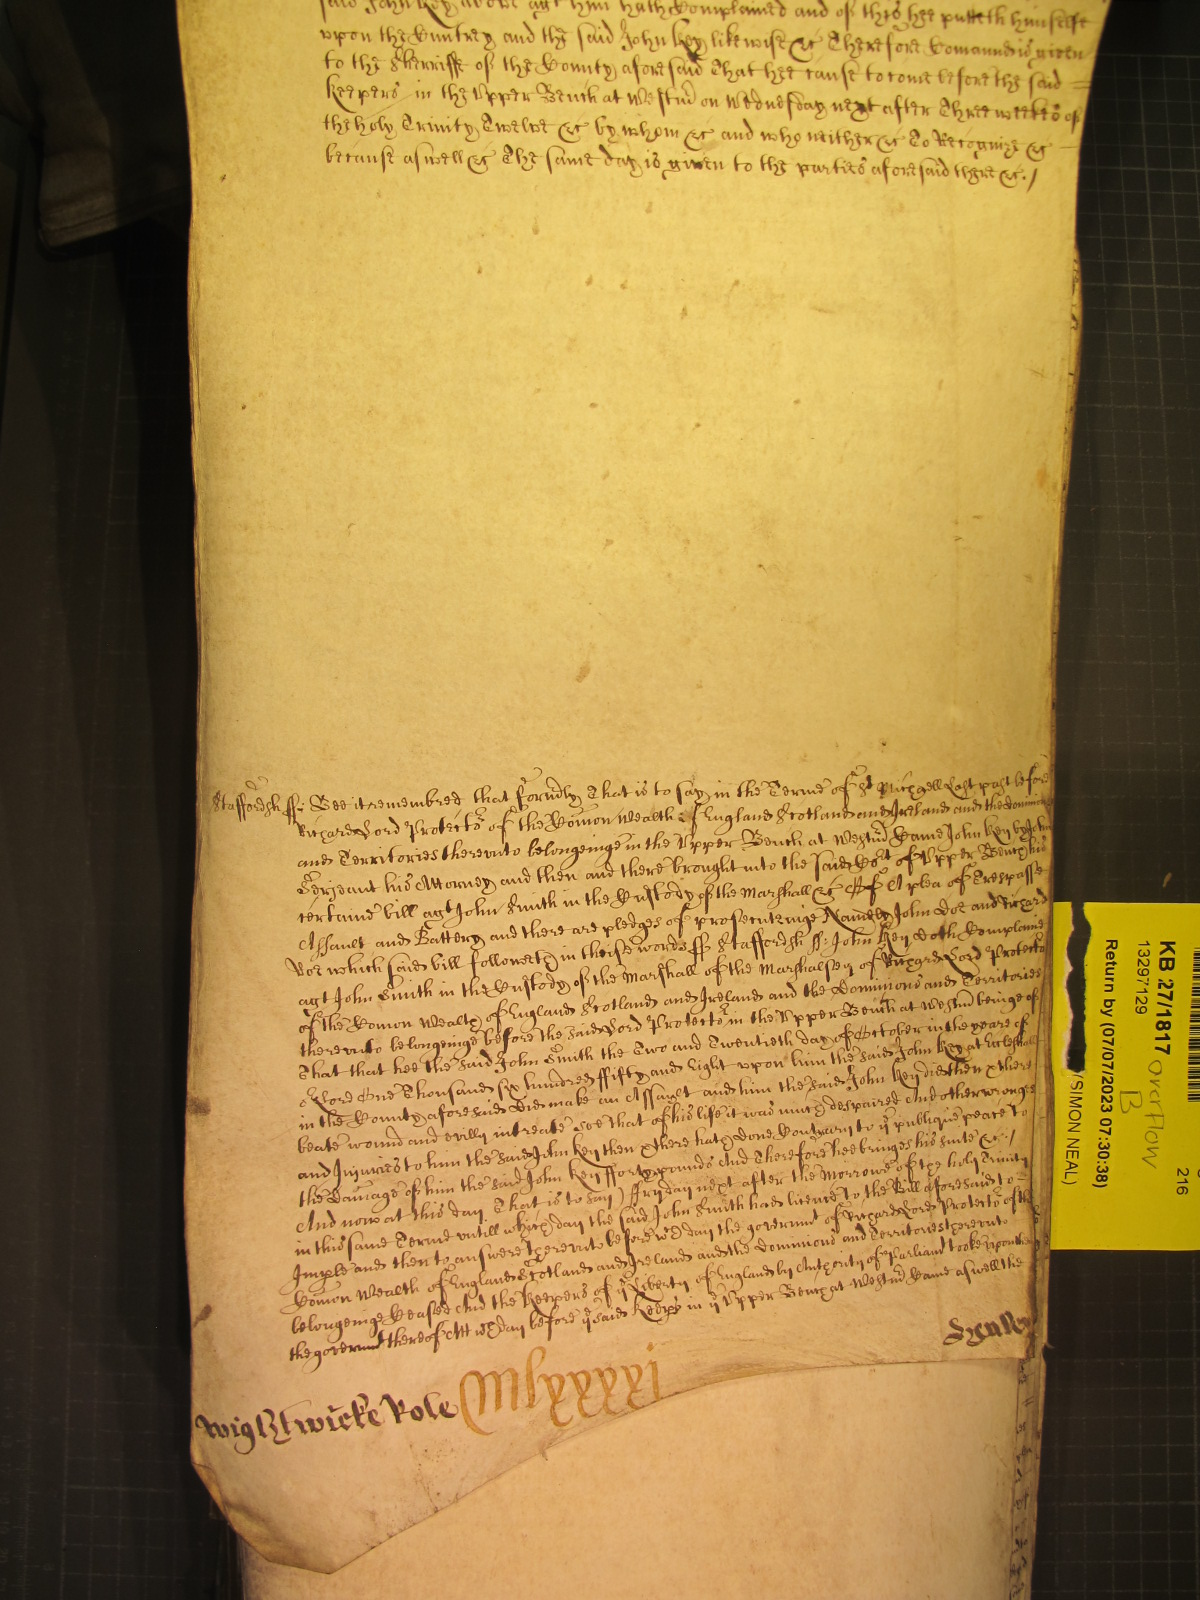 said John Key above agt him hath Complained and of this hee putteth himselfe
vpon the Cuntrey and the said John Key likewise &c Therefore Comaund is given
to the Sherriffe of the County aforesaid That hee cause to come before the said
Keepers in the Vpper Bench at Westm̄ on Wednesday next after Three weekes of
the holy Trinity Twelve &c by whom &c and who neither &c To Recognize &c
because aswell &c The same day is given to the parties aforesaid there &c./
Staffordsh ss: Bee it remembred that formrly That is to say in the Terme of St Michaell Last past before
Richard Lord Protector of the Comon Wealth of England Scotland and Ireland and the dominions
and Territories therevnto belongeinge in the Vpper Bench at Westm̄ Came John Key by John
Serjeant his Attorney and then and there brought into the said Cort of Vpper Bench his
certaine bill agt John Smith in the Custody of the Marshall &c Of A plea of Trespasse
Assault and Battery and there are pledges of prosecuteinge Namely John Doe and Richard
Roe which said bill followeth in theise words ss Staffordsh ss: John Key doth Complaine
agt John Smith in the Custody of the Marshall of the Marshalsey of Richard Lord Protector
of the Comon Wealth of England Scotland and Ireland and the Dominions and Territories
therevnto belongeinge before the said Lord Protector in the Vpper Bench at Westm̄ beinge of
That that hee the said John Smith the Two and Twentieth day of October in the yeare of
Lord One Thousand six hundred ffifty and Eight vpon him the said John Key at Eccleshall
in the County aforesaid did make an Assault and him the said John Key did then & there
beate wound and evilly intreate soe that of his life it was much despaired And other wronges
and Injuries to him the said John Key then & there hath done Contrary to ye publique peace to
the damage of him the said John Key fforty pounds And Therefore hee bringes his suite &c./
And now at this day That is to say) ffryday next after the Morrowe of the holy Trinity
in this same Terme vntill which day the said John Smith had licence to the Bill aforesaid to
Imple and then to answere Therevnto before wch day the governmt of Richard Lord Protector of the
Comon Wealth of England Scotland and Ireland and the Dominions and Territories therevnto
belongeinge Ceased And the Keepers of ye Liberty of England by Authority of Parliamt tooke vpon them
the governmt thereof Att wch day before ye said Keeps in ye Vpper Bench at Westm̄ Came aswell the
Wightwicke Role Mlxxxxi
KB 27/1817
overflow
B
13297129
216
/SIMON NEAL)
Return by (07/07/2023 07:30:38)